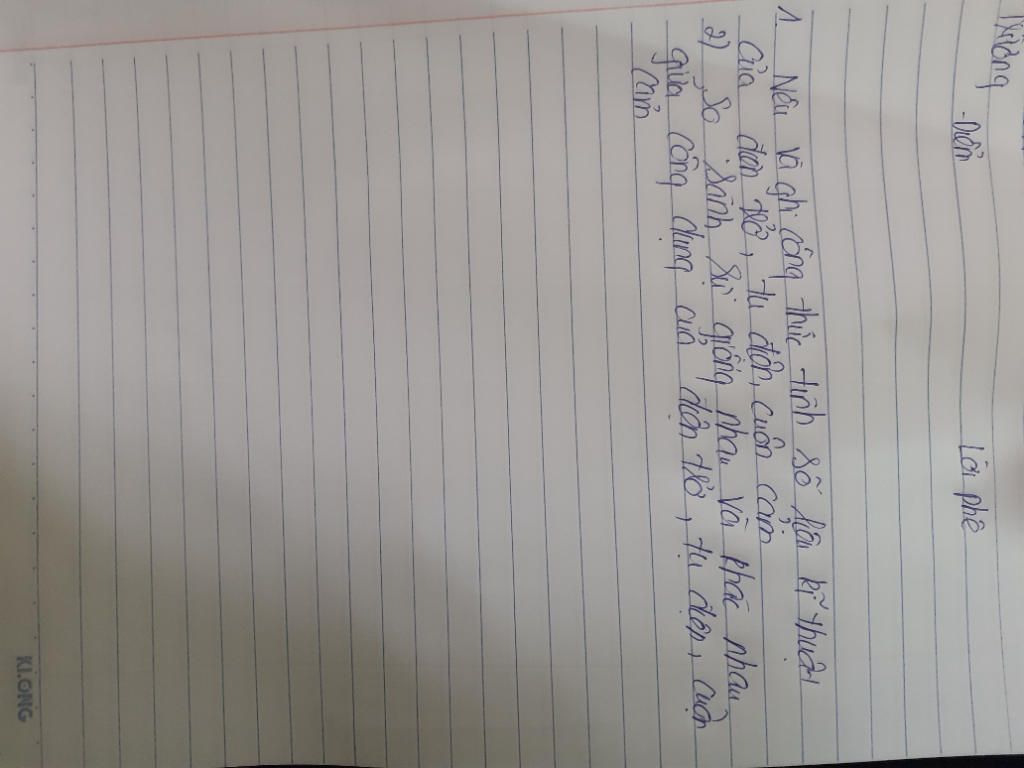 Điểm Lời phê
1 Nêu và ghi công thức tính số liệu kĩ thuật
của điện trở, tụ điện, cuộn cảm
2) So sánh sự giống nhau và khác nhau
giữa công dụng của điện trở, tụ điện, cuộn
cảm
KLONG